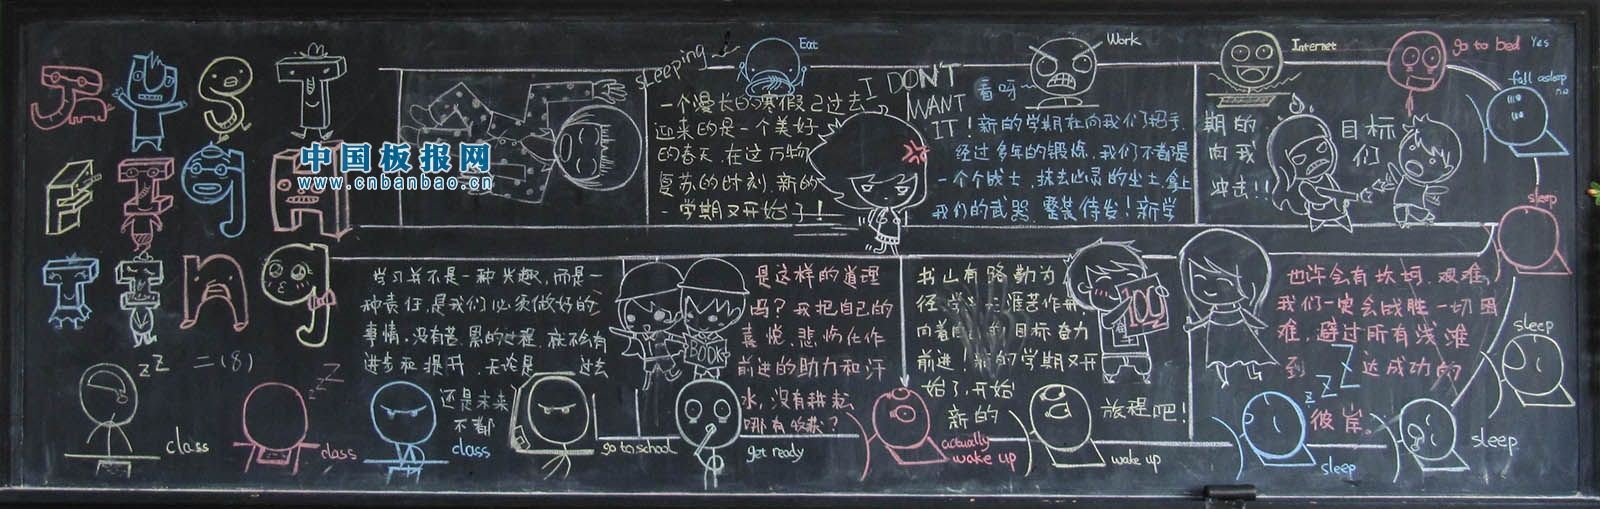 JUST
FIGH
TING
中国板报网
www.cnbanbao.cn
二(8)
sleeping
Eat
I DON'T
WANT
IT!
Work
Internet
go to bed
Yes
fall asleep
no
sleep
一个漫长的寒假已过去
迎来的是一个美好
的春天,在这万物
复苏的时刻,新的
一学期又开始了!
看呀~
新的学期在向我们招手.
经过多年的锻炼,我们不都是
一个个战士,抹去心灵的尘土,拿上
我们的武器,整装待发!新学
期的
向我
冲去!!
目标
们
学习并不是一种兴趣,而是一
种责任,是我们必须做好的
事情,没有苦、累的过程,就不会有
进步和提升,无论是
过去
还是未来
不都
是这样的道理
吗?我把自己的
喜悦,悲伤化作
前进的助力和汗
水,没有耕耘
哪有收获?
BOOK
书山有路勤为
径,学
涯苦作舟
向着
的目标奋力
前进!新的学期又开
始了,开始
新的
旅程吧!
100
也许会有坎坷,艰难,
我们一定会战胜一切困
难,避过所有浅滩
到
达成功的
彼岸。
zZ
class
zzZ
class
class
go to school
get ready
actually
wake up
wake up
zzZ
sleep
sleep
sleep